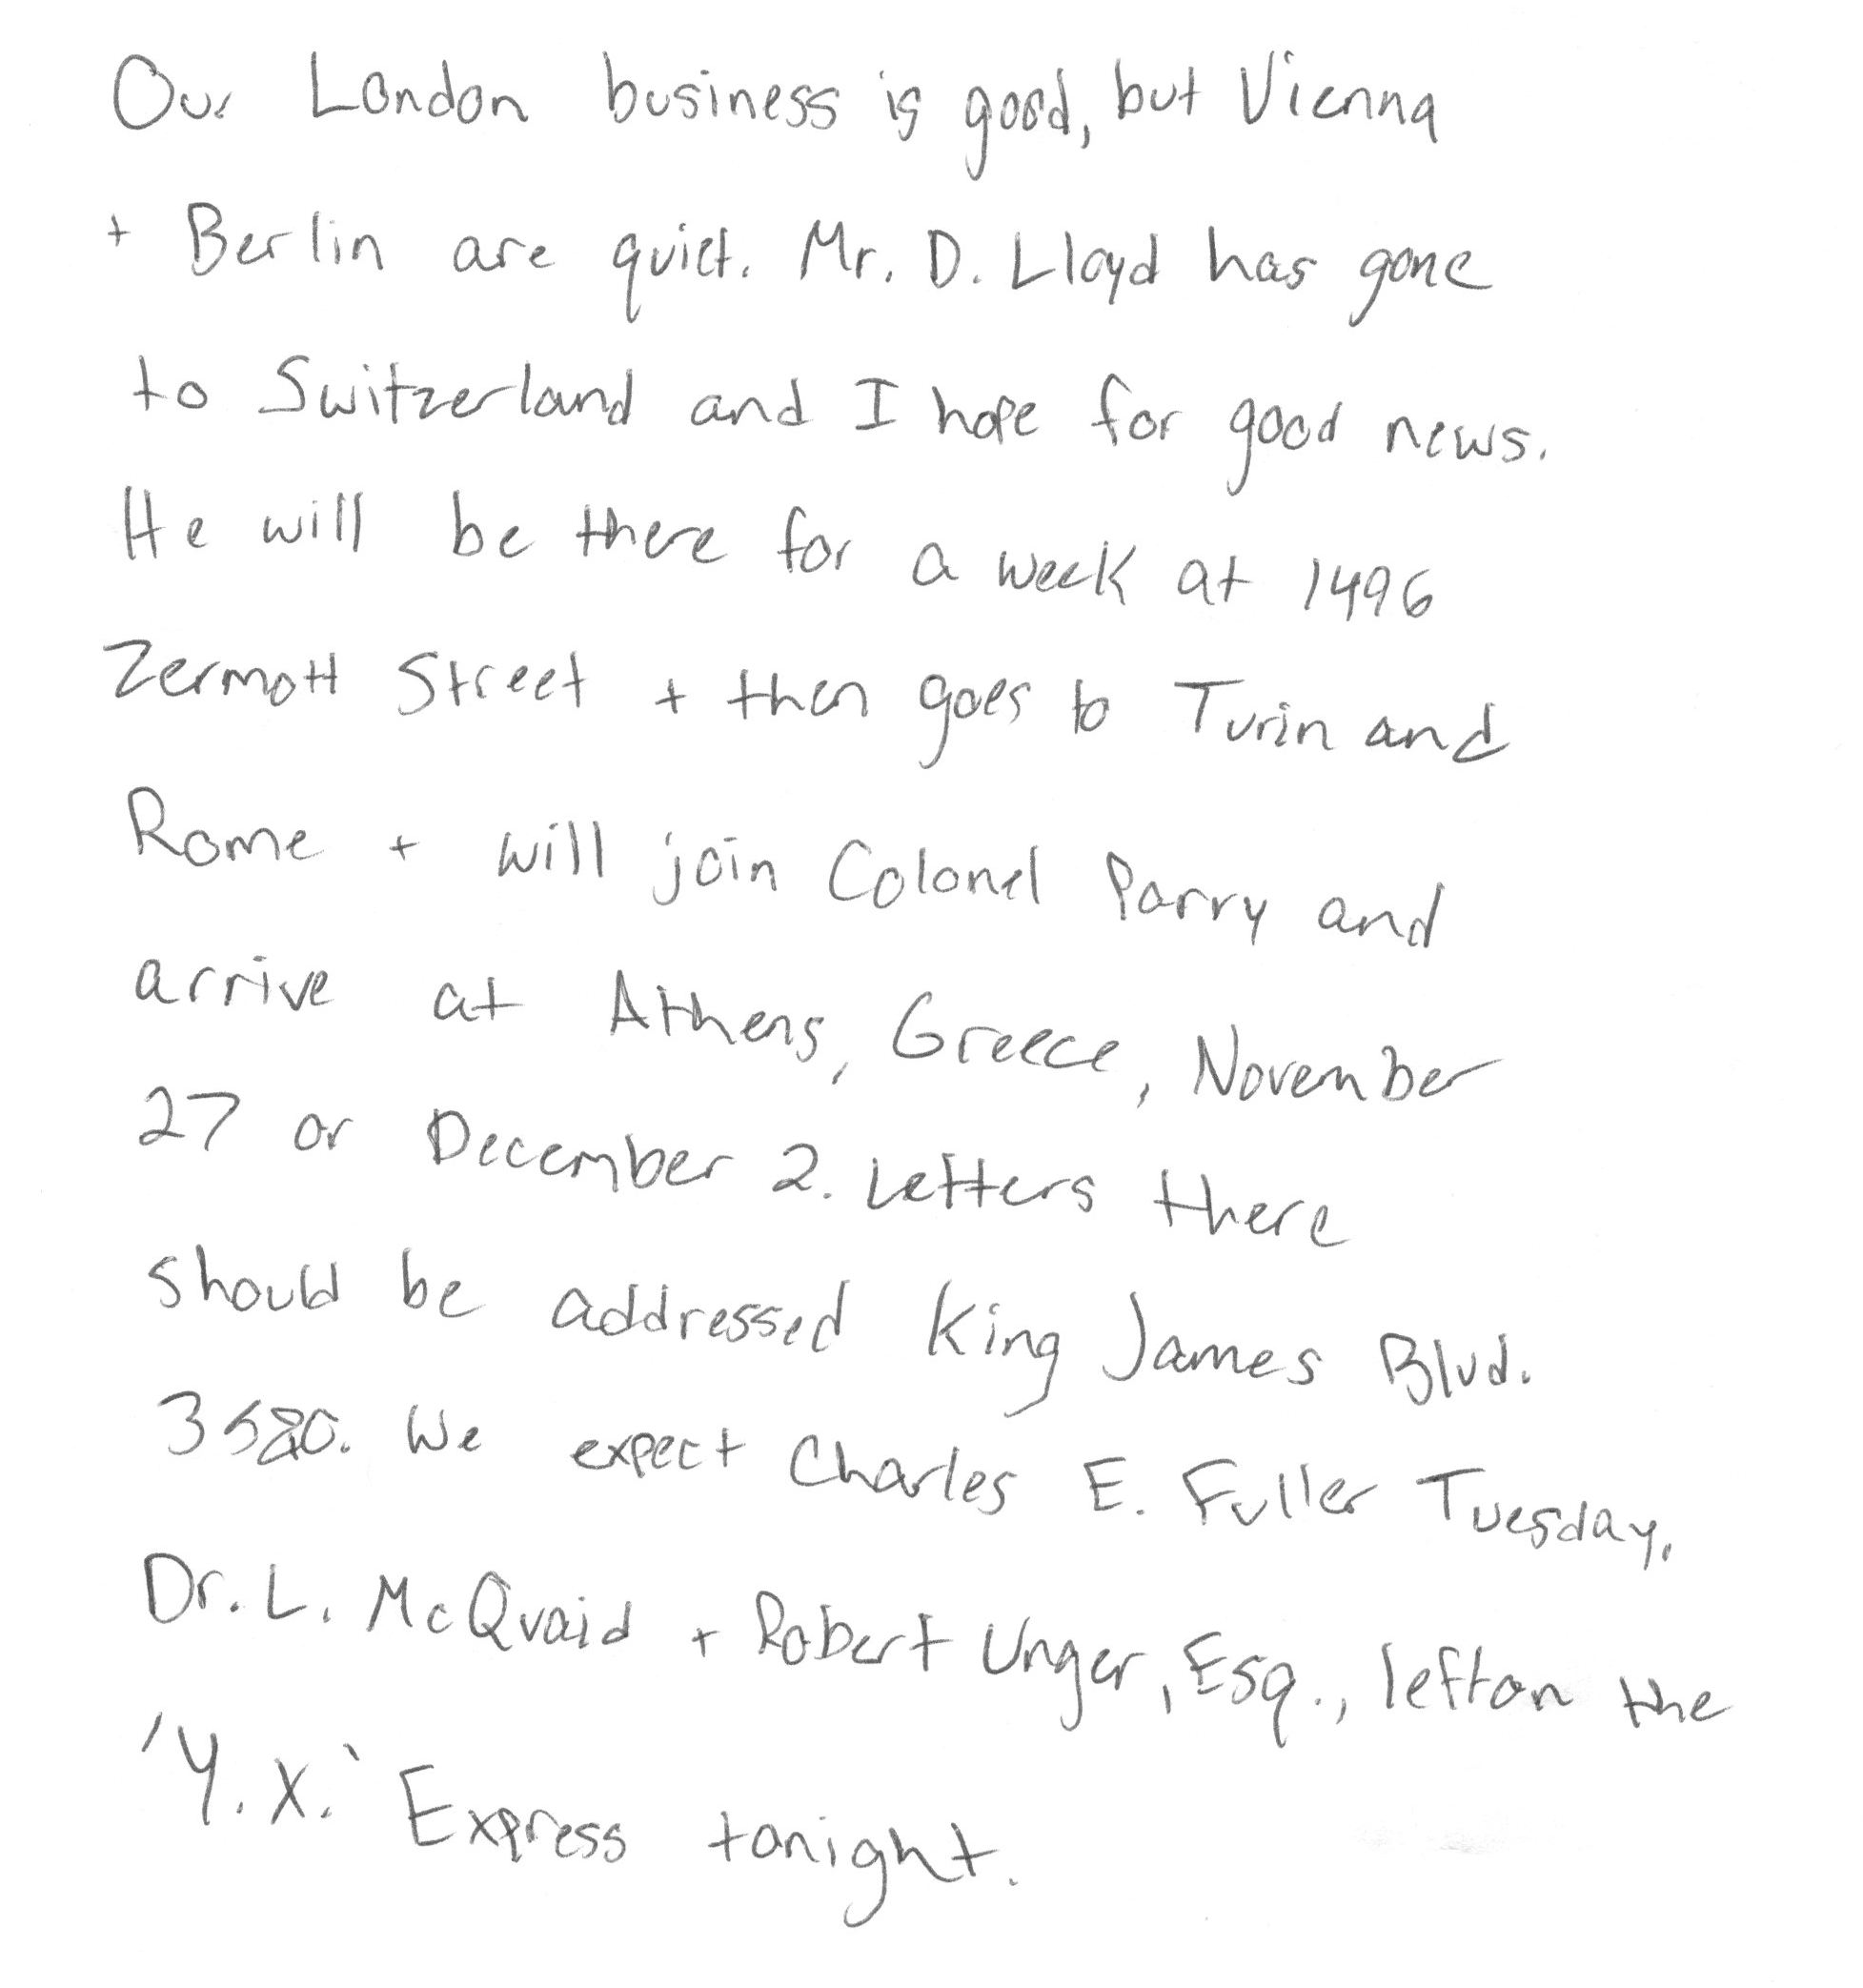 Our London business is good, but Vienna
+ Berlin are quiet. Mr. D. Lloyd has gone
to Switzerland and I hope for good news.
He will be there for a week at 1496
Zermott Street + then goes to Turin and
Rome + will join Colonel Parry and
arrive at Athens, Greece, November
27 or December 2. Letters there
should be addressed King James Blvd.
3580. We expect Charles E. Fuller Tuesday.
Dr. L. McQuaid + Robert Unger, Esq., left on the
'Y.X.' Express tonight.